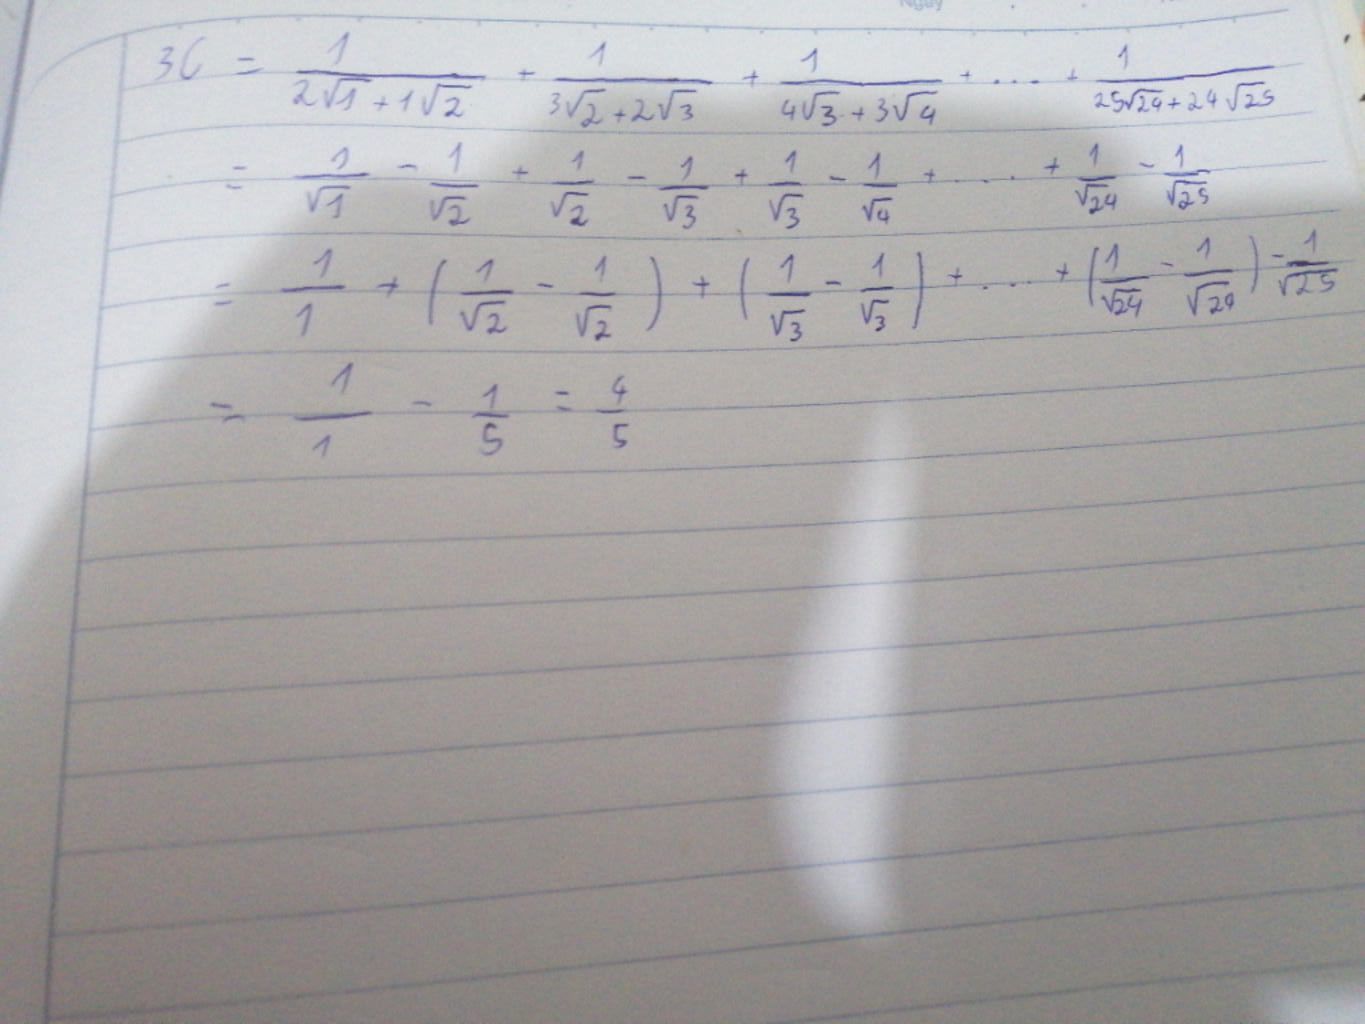 Ngày
3C = 1/(2√1 + 1√2) + 1/(3√2 + 2√3) + 1/(4√3 + 3√4) + .... + 1/(25√24 + 24√25)
= 1/√1 - 1/√2 + 1/√2 - 1/√3 + 1/√3 - 1/√4 + .... + 1/√24 - 1/√25
= 1/1 + (1/√2 - 1/√2) + (1/√3 - 1/√3) + .... + (1/√24 - 1/√24) - 1/√25
= 1/1 - 1/5 = 4/5